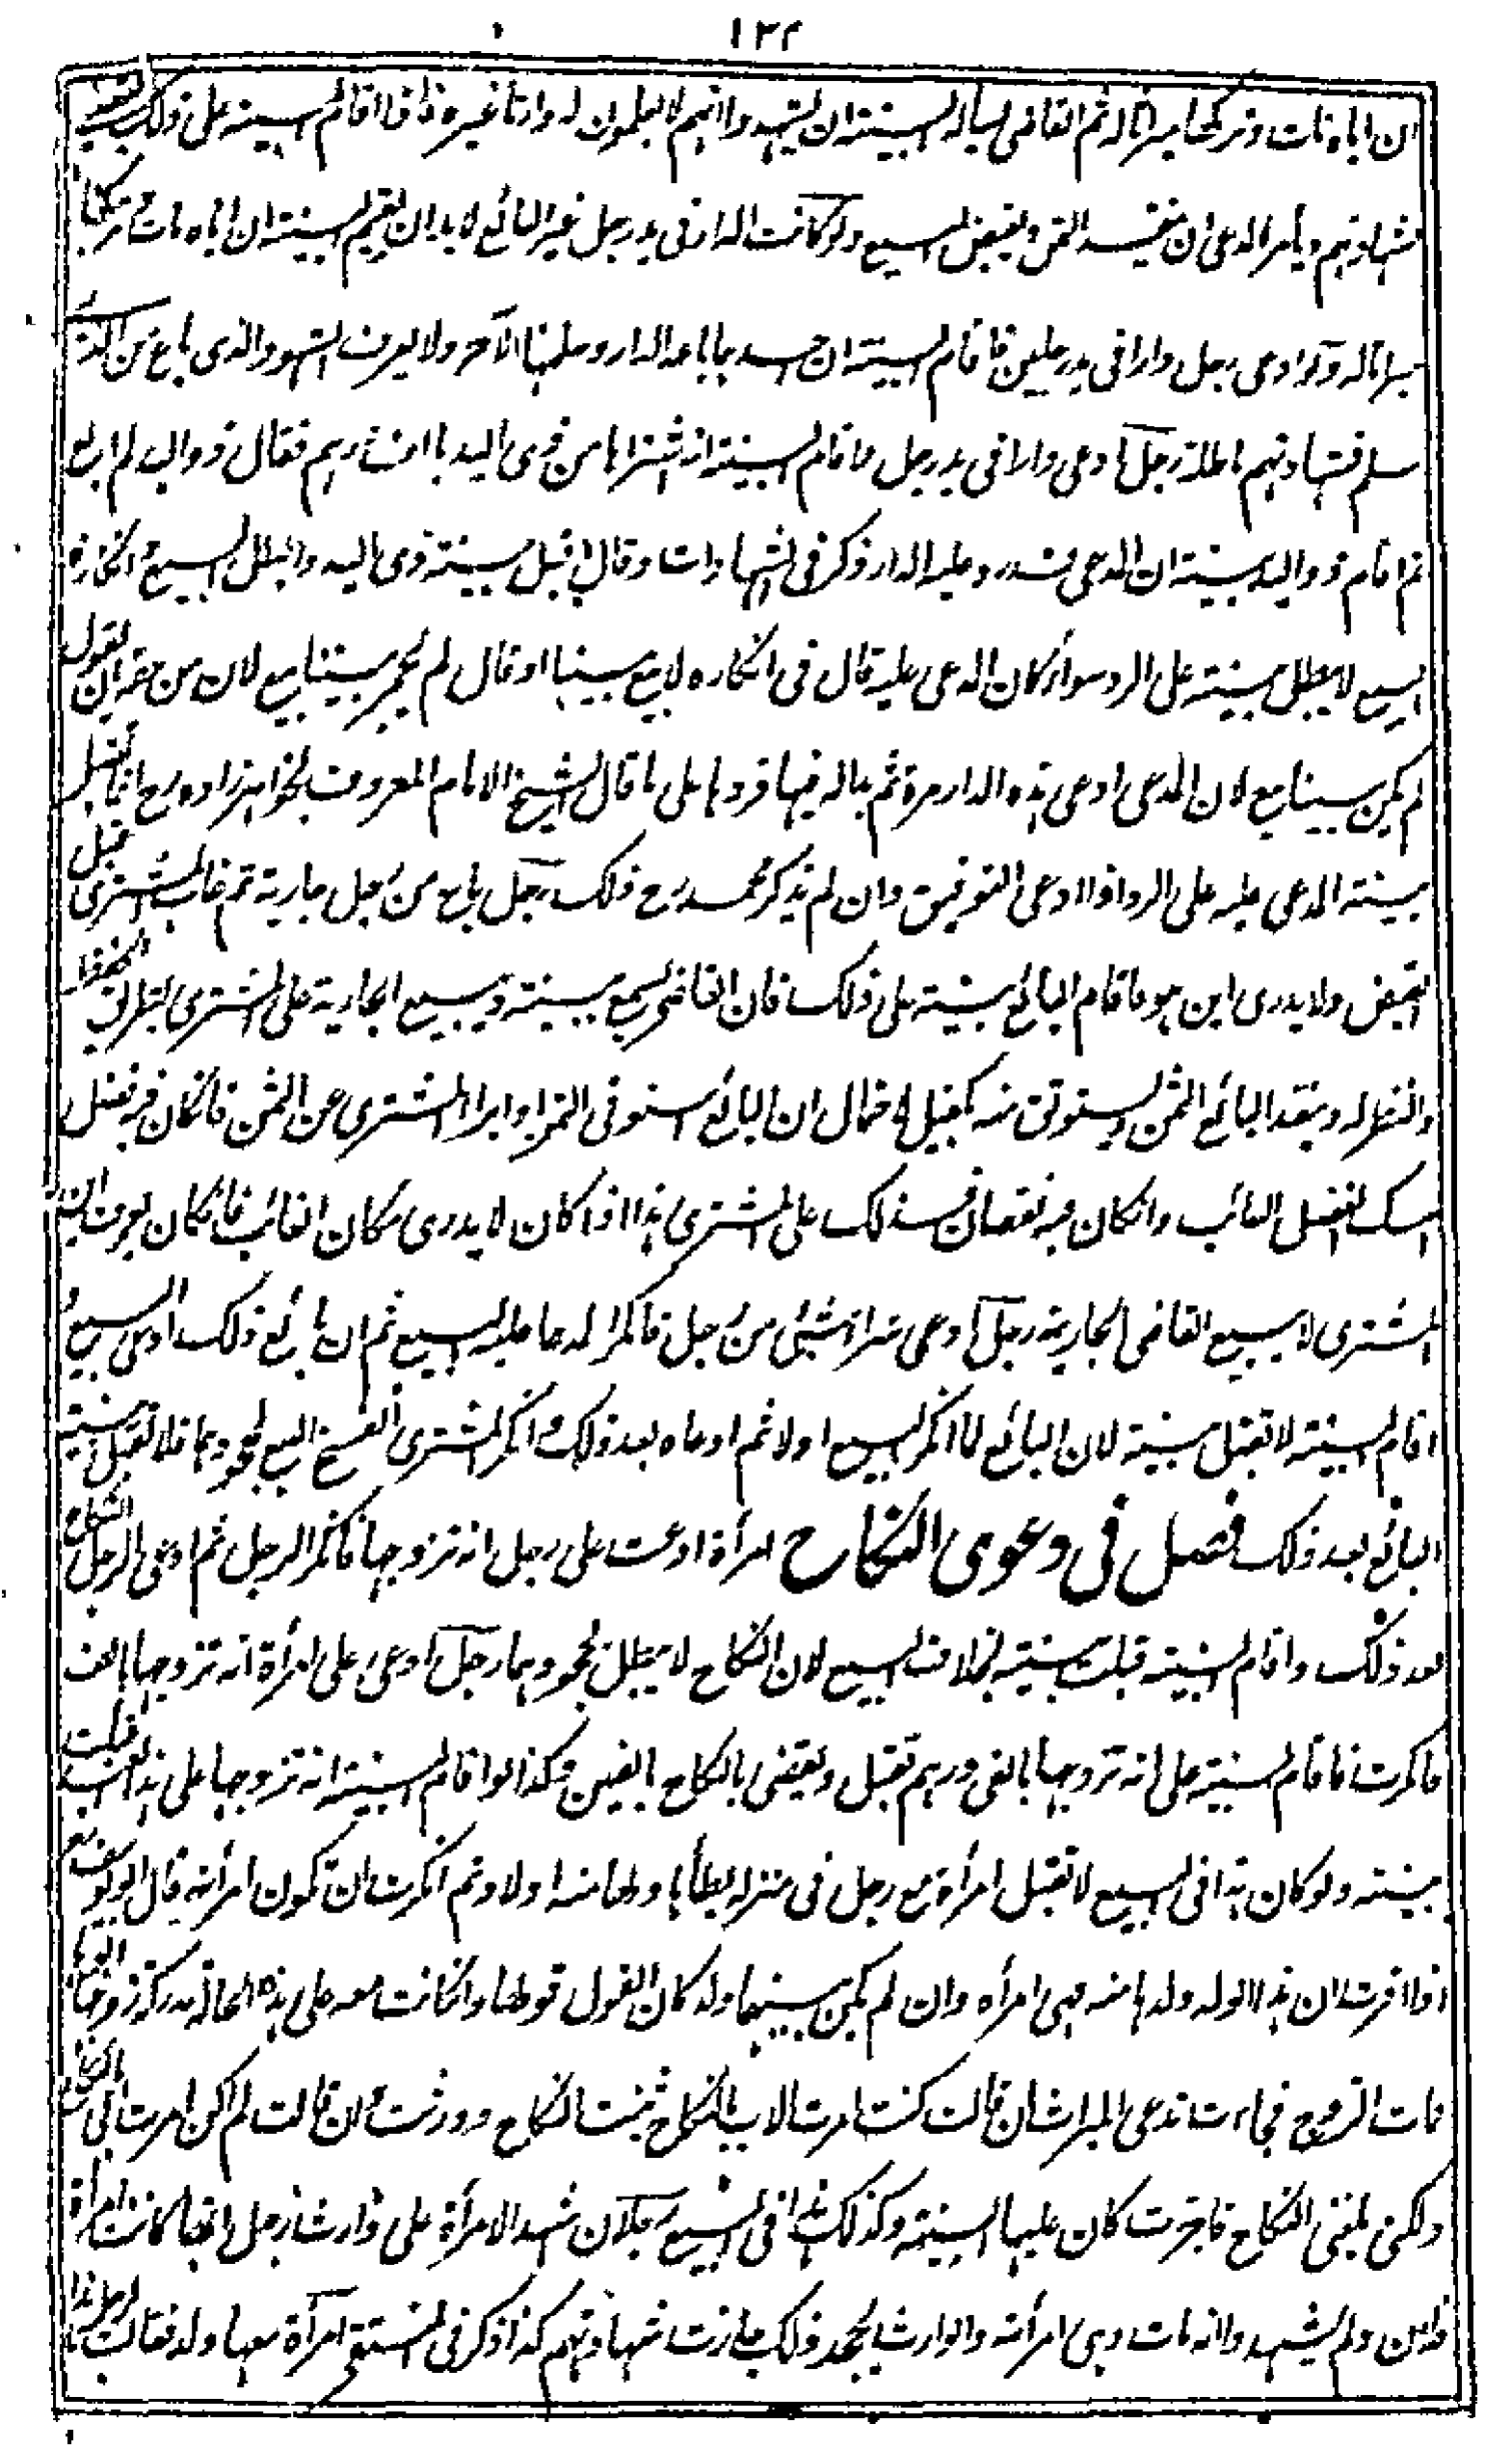 ١٣٢
ان اباه مات وتركها ميراثا له ثم القاضي يسأله البينة ان يشهدوا انهم لا يعلمون له وارثا غيره فاذا اقام البينة على ذلك يقبل القاضي
شهادتهم ويأمر المدعي ان ينقد الثمن ويقبض المبيع ولو كانت الدار في يد رجل غير البائع لا بد ان يقيم البينة ان اباه مات وتركها
ميراثا له ولو ادعى رجل دارا في يد رجلين فاقام البينة ان احدهما باعه الدار وسلمها الآخر ولا يعرف الشهود الذي باع من الذي
سلم فشهادتهم باطلة رجل ادعى دارا في يد رجل فاقام البينة انه اشتراها من ذي اليد بالف درهم فقال ذو اليد لم ابع
ثم اقام ذو اليد بينة ان المدعي قد رد عليه الدار ذكر في الشهادات وقال اقبل بينة ذي اليد وابطل البيع وانكاره
البيع لا يبطل بينته على الرد سواء كان المدعى عليه قال في انكاره لا بيع بيننا او قال لم يجر بيننا بيع لان من حقه ان يقول
لم يكن بيننا بيع لان المدعي ادعى هذه الدار مرة ثم بدا له فيها فردها على ما قال الشيخ الامام المعروف بخواهرزاده رح انما يقبل
بينة المدعى عليه على الرد اذا ادعى التوفيق وان لم يذكر محمد رح ذلك رجل باع من رجل جارية ثم غاب المشتري قبل
القبض ولا يدري اين هو فاقام البائع بينة على ذلك فان القاضي يسمع بينته ويبيع الجارية على المشتري بطريق الحفظ
والنظر له وينقد البائع الثمن ويستوثق منه بكفيل لاحتمال ان البائع استوفى الثمن او ابرأ المشتري عن الثمن فان كان فيه فضل
امسك الفضل للغائب وان كان فيه نقصان فذلك على المشتري هذا اذا كان لا يدري مكان الغائب فان كان يعرف اين
المشتري لا يبيع القاضي الجارية رجل ادعى شراء شيء من رجل فانكر المدعى عليه البيع ثم ان البائع ذلك ادعى البيع و
اقام البينة لا تقبل بينته لان البائع لما انكر البيع اولا ثم ادعاه بعد ذلك وانكر المشتري انفسخ البيع بجحودهما فلا تقبل بينة
البائع بعد ذلك فصل في دعوى النكاح امرأة ادعت على رجل انه تزوجها فانكر الرجل ثم ادعى الرجل النكاح
بعد ذلك واقام البينة قبلت بينته بخلاف البيع لان النكاح لا يبطل بجحودهما رجل ادعى على امرأة انه تزوجها بالف
فانكرت فاقام البينة على انه تزوجها بالفي درهم تقبل ويقضى بالنكاح بالفين وكذا لو اقام البينة انه تزوجها على هذا العبد قبلت
بينته ولو كان هذا في البيع لا تقبل امرأة مع رجل في منزله يطأها ولها منه اولاد ثم انكرت ان تكون امرأته قال ابو يوسف رح
اذا اقرت ان هذا الولد ولدها منه فهي امرأته وان لم يكن بينهما ولد كان القول قولها وان كانت معه على هذه الحالة
مات الزوج فجاءت تدعي الميراث ان قالت كنت امرت الاب بالنكاح ثبت النكاح وورثت وان قالت لم اكن امرت ابي بالنكاح
ولكن بلغني النكاح فاجزت كان عليها البينة وكذلك هذا في البيع رجلان شهدا لامرأة على وارث رجل انها كانت امرأة
ولم يشهدوا انه مات وهي امرأته والوارث يجحد ذلك جازت شهادتهم كذا ذكر في المنتقى امرأة معها ولد فقالت لرجل هذا